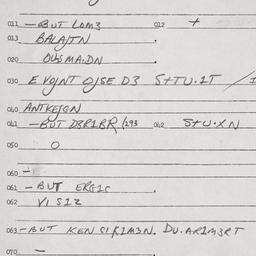 011 – BUT LOM3 012 +
013 BALAJTN .
020 OLISMA:DN .
030 E VOJNT OJSE D3 S+TU.1T /1
040 ANTKEJGN
041 – BUT D3R1BR (193 042 S+U.XN
050 O
060 –
061 – BUT ERG1C .
062 V1 S1Z
063 – BUT KEN C1 R1M3N. DU.AR1M3RT
070 –